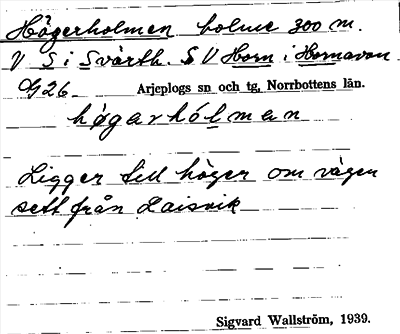 Högerholmen holme 300 m.
V S i Svärth. S V Horn i Hornavan
G26 Arjeplogs sn och tg, Norrbottens län.
høgarhólman
Ligger till höger om vägen
sett från Laisvik
Sigvard Wallström, 1939.